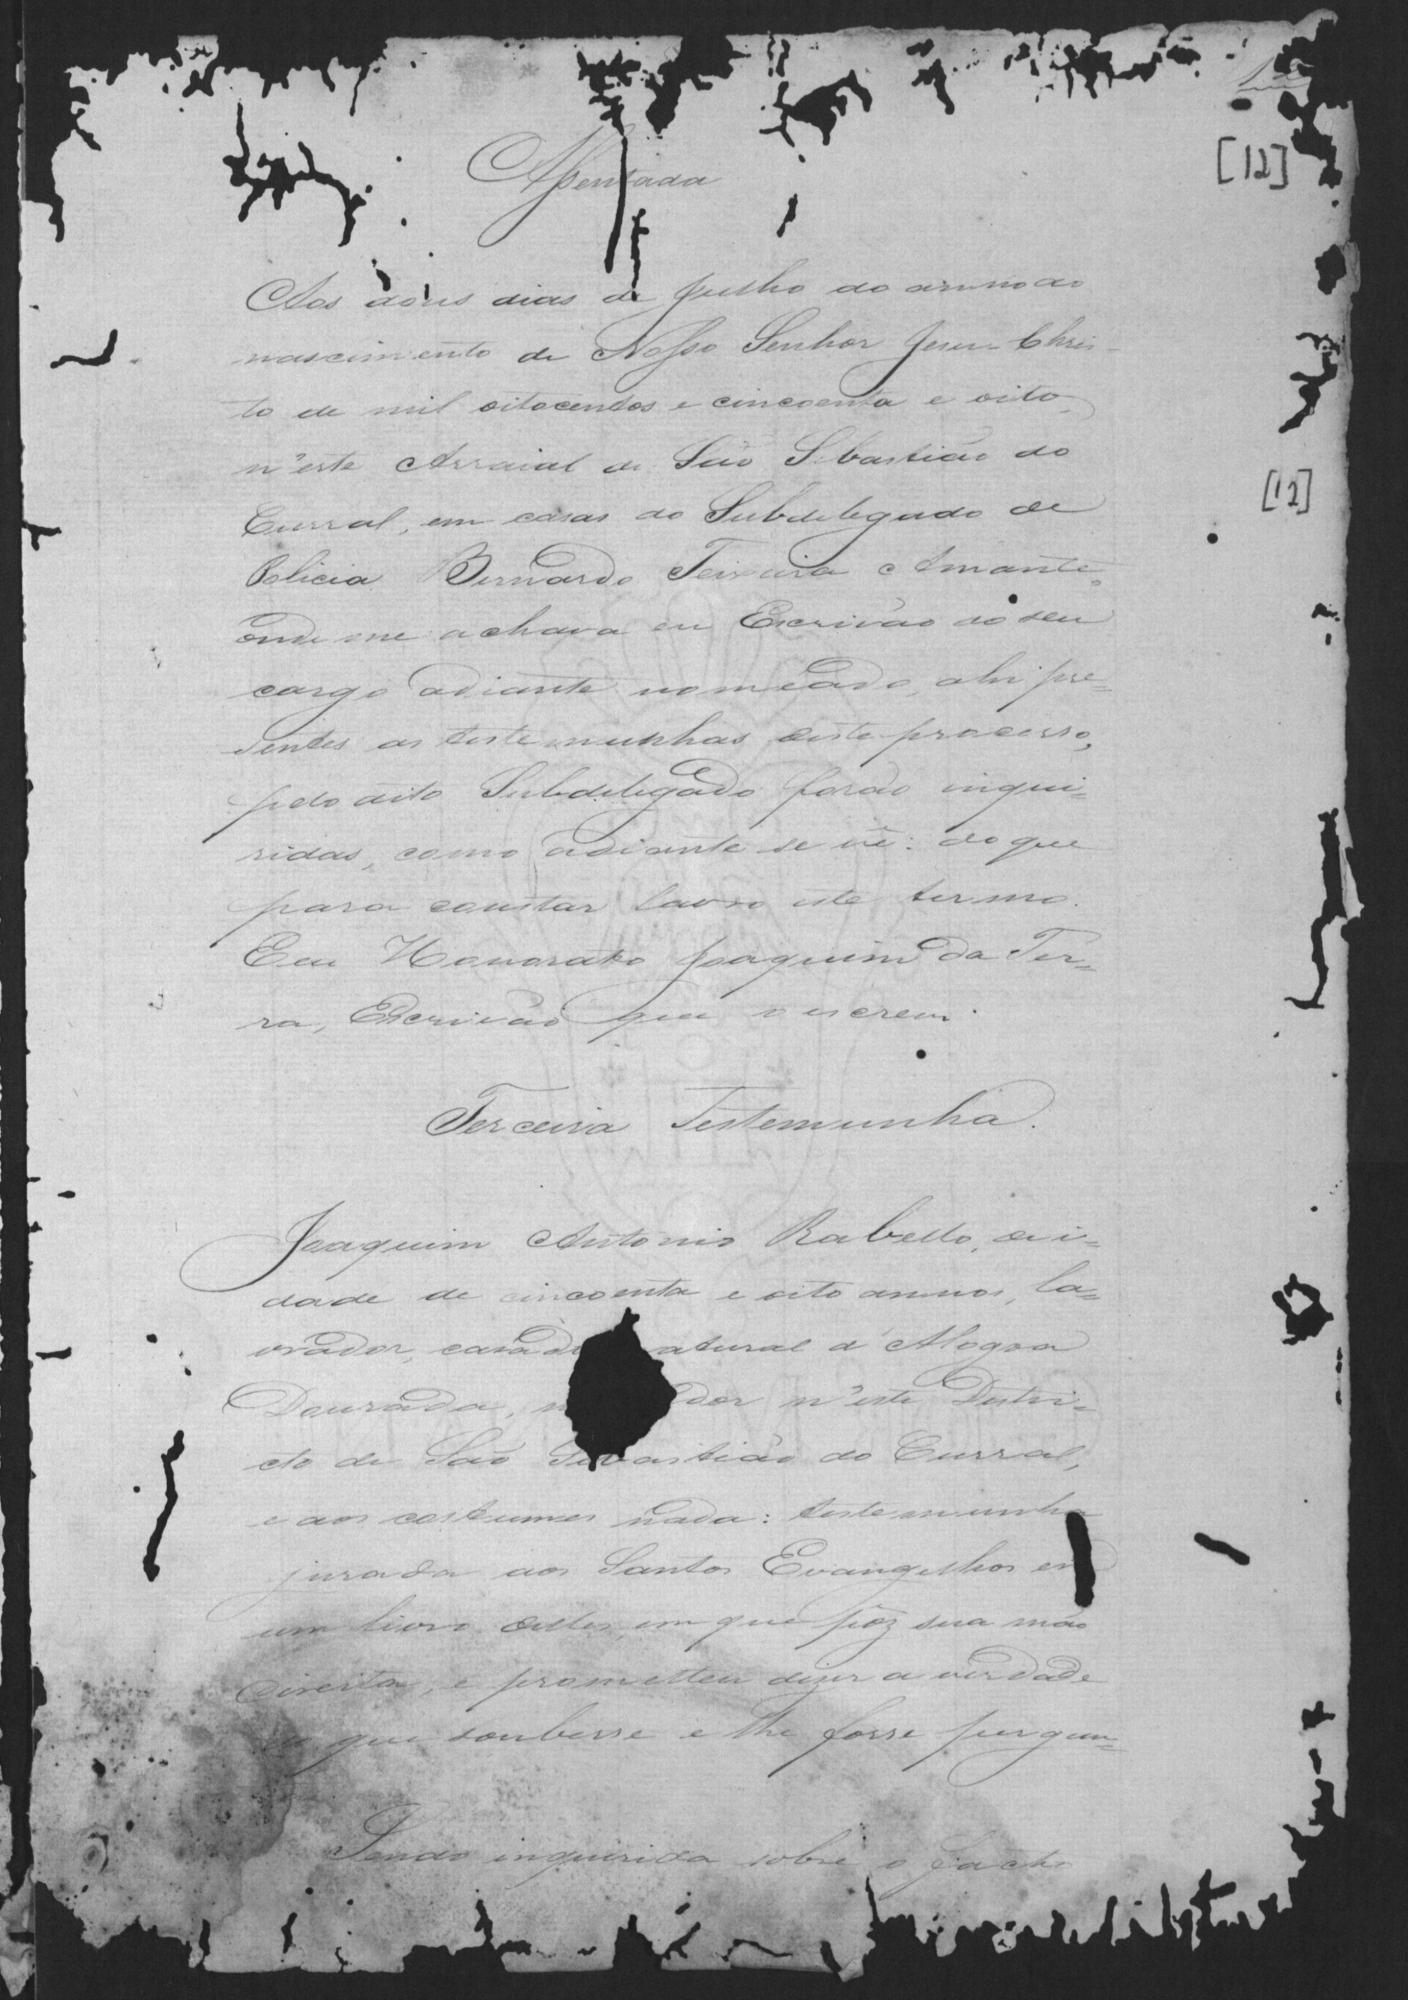 [12]
Assentada
Aos dous dias de Julho do anno do
nascimento de Nosso Senhor Jesus Chris-
to de mil oitocentos e cincoenta e oito,
n'este Arraial de São Sebastião do
Curral, em casas do Subdelegado de
Policia Bernardo Teixeira Amante,
onde me achava eu Escrivão do seu
cargo adiante nomeado, ahi pre=
sentes as testemunhas deste processo,
pelo dito Subdelegado forão inqui=
ridas, como adiante se vê: do que
para constar lavro este termo.
Eeu Honorato Joaquim da Ter=
ra, Escrivão que o escrevi.
[12]
Terceira Testemunha.
Joaquim Antonio Rabello, de i=
dade de cincoenta e oito annos, la=
vrador, casado atural d'Alagoa
Dourada, dor n'este Distri=
cto de São Sebastião do Curral,
e aos costumes nada: testemunha
jurada aos Santos Evangelhos em
um livro delles, em que pôz sua mão
direita, e prometteu dizer a verdade
que soubesse e lhe fosse pergun=
Sendo inquirida sobre o facto